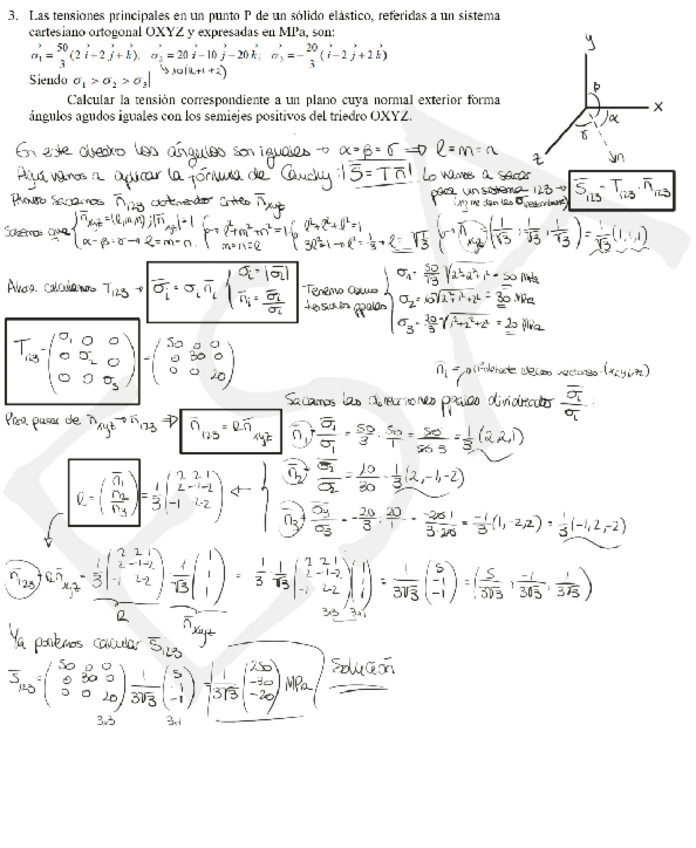 3. Las tensiones principales en un punto P de un sólido elástico, referidas a un sistema
cartesiano ortogonal OXYZ y expresadas en MPa, son:
σ₁ = 50/3 (2 i + 2 j + k); σ₂ = 20 i - 10 j - 20 k; σ₃ = - 20/3 ( i - 2 j + 2 k )
Siendo σ₁ > σ₂ > σ₃
Calcular la tensión correspondiente a un plano cuya normal exterior forma
ángulos agudos iguales con los semiejes positivos del triedro OXYZ.
y
P
x
α
z
En este los ángulos son iguales → α = β = γ ⇒ l = m = n
Aquí vamos a aplicar la fórmula de Cauchy: S = T n Lo vamos a sacar
para un sistema 123 → S₁₂₃ = T₁₂₃ · n₁₂₃
Primero sacamos n₁₂₃ antes n_xyz
Sabemos que n_xyz = (l, m, n) α = β = γ → l = m = n l² + m² + n² = 1 m = n = l l² + l² + l² = 1 n_xyz (1/√3, 1/√3, 1/√3) = 1/√3 (1,1,1)
Ahora calculamos T₁₂₃ → σi = σi ni σi = |σi| ni = σi/σi Tenemos como
σ₂ = 10√2²+1²+2² = 30 MPa
σ₃ = 20/3 √1²+2²+2² = 20 MPa
T₁₂₃ = (σ₁ 0 0 / 0 σ₂ 0 / 0 0 σ₃) = (50 0 0 / 0 30 0 / 0 0 20)
Sacamos las direcciones ppales dividiendo σi/σi
Para pasar de n_xyz → n₁₂₃ ⇒ n₁₂₃ = R n_xyz n₁ = σ₁/σ₁ = 1/3 (2,2,1)
R = (n₁ / n₂ / n₃) = 1/3 (2 2 1 / 2 -1 -2 / -1 2 -2) ← n₂ = σ₂/σ₂ = 10/30 = 1/3 (2,-1,-2)
n₃ = σ₃/σ₃ = -1/3 (1,-2,2) = 1/3 (-1,2,-2)
n₁₂₃ = R n_xyz = 1/3 (2 2 1 / 2 -1 -2 / -1 2 -2) 1/√3 (1 / 1 / 1) = 1/3 · 1/√3 (2 2 1 / 2 -1 -2 / -1 2 -2) (1 / 1 / 1) = 1/3√3 (5 / -1 / -1) = (5/3√3, -1/3√3, -1/3√3)
R
n_xyz
3x3 3x1
Ya podemos calcular S₁₂₃
S₁₂₃ = (50 0 0 / 0 30 0 / 0 0 20) 1/3√3 (5 / -1 / -1) = 1/3√3 (250 / -30 / -20) MPa Solución
3x3 3x1